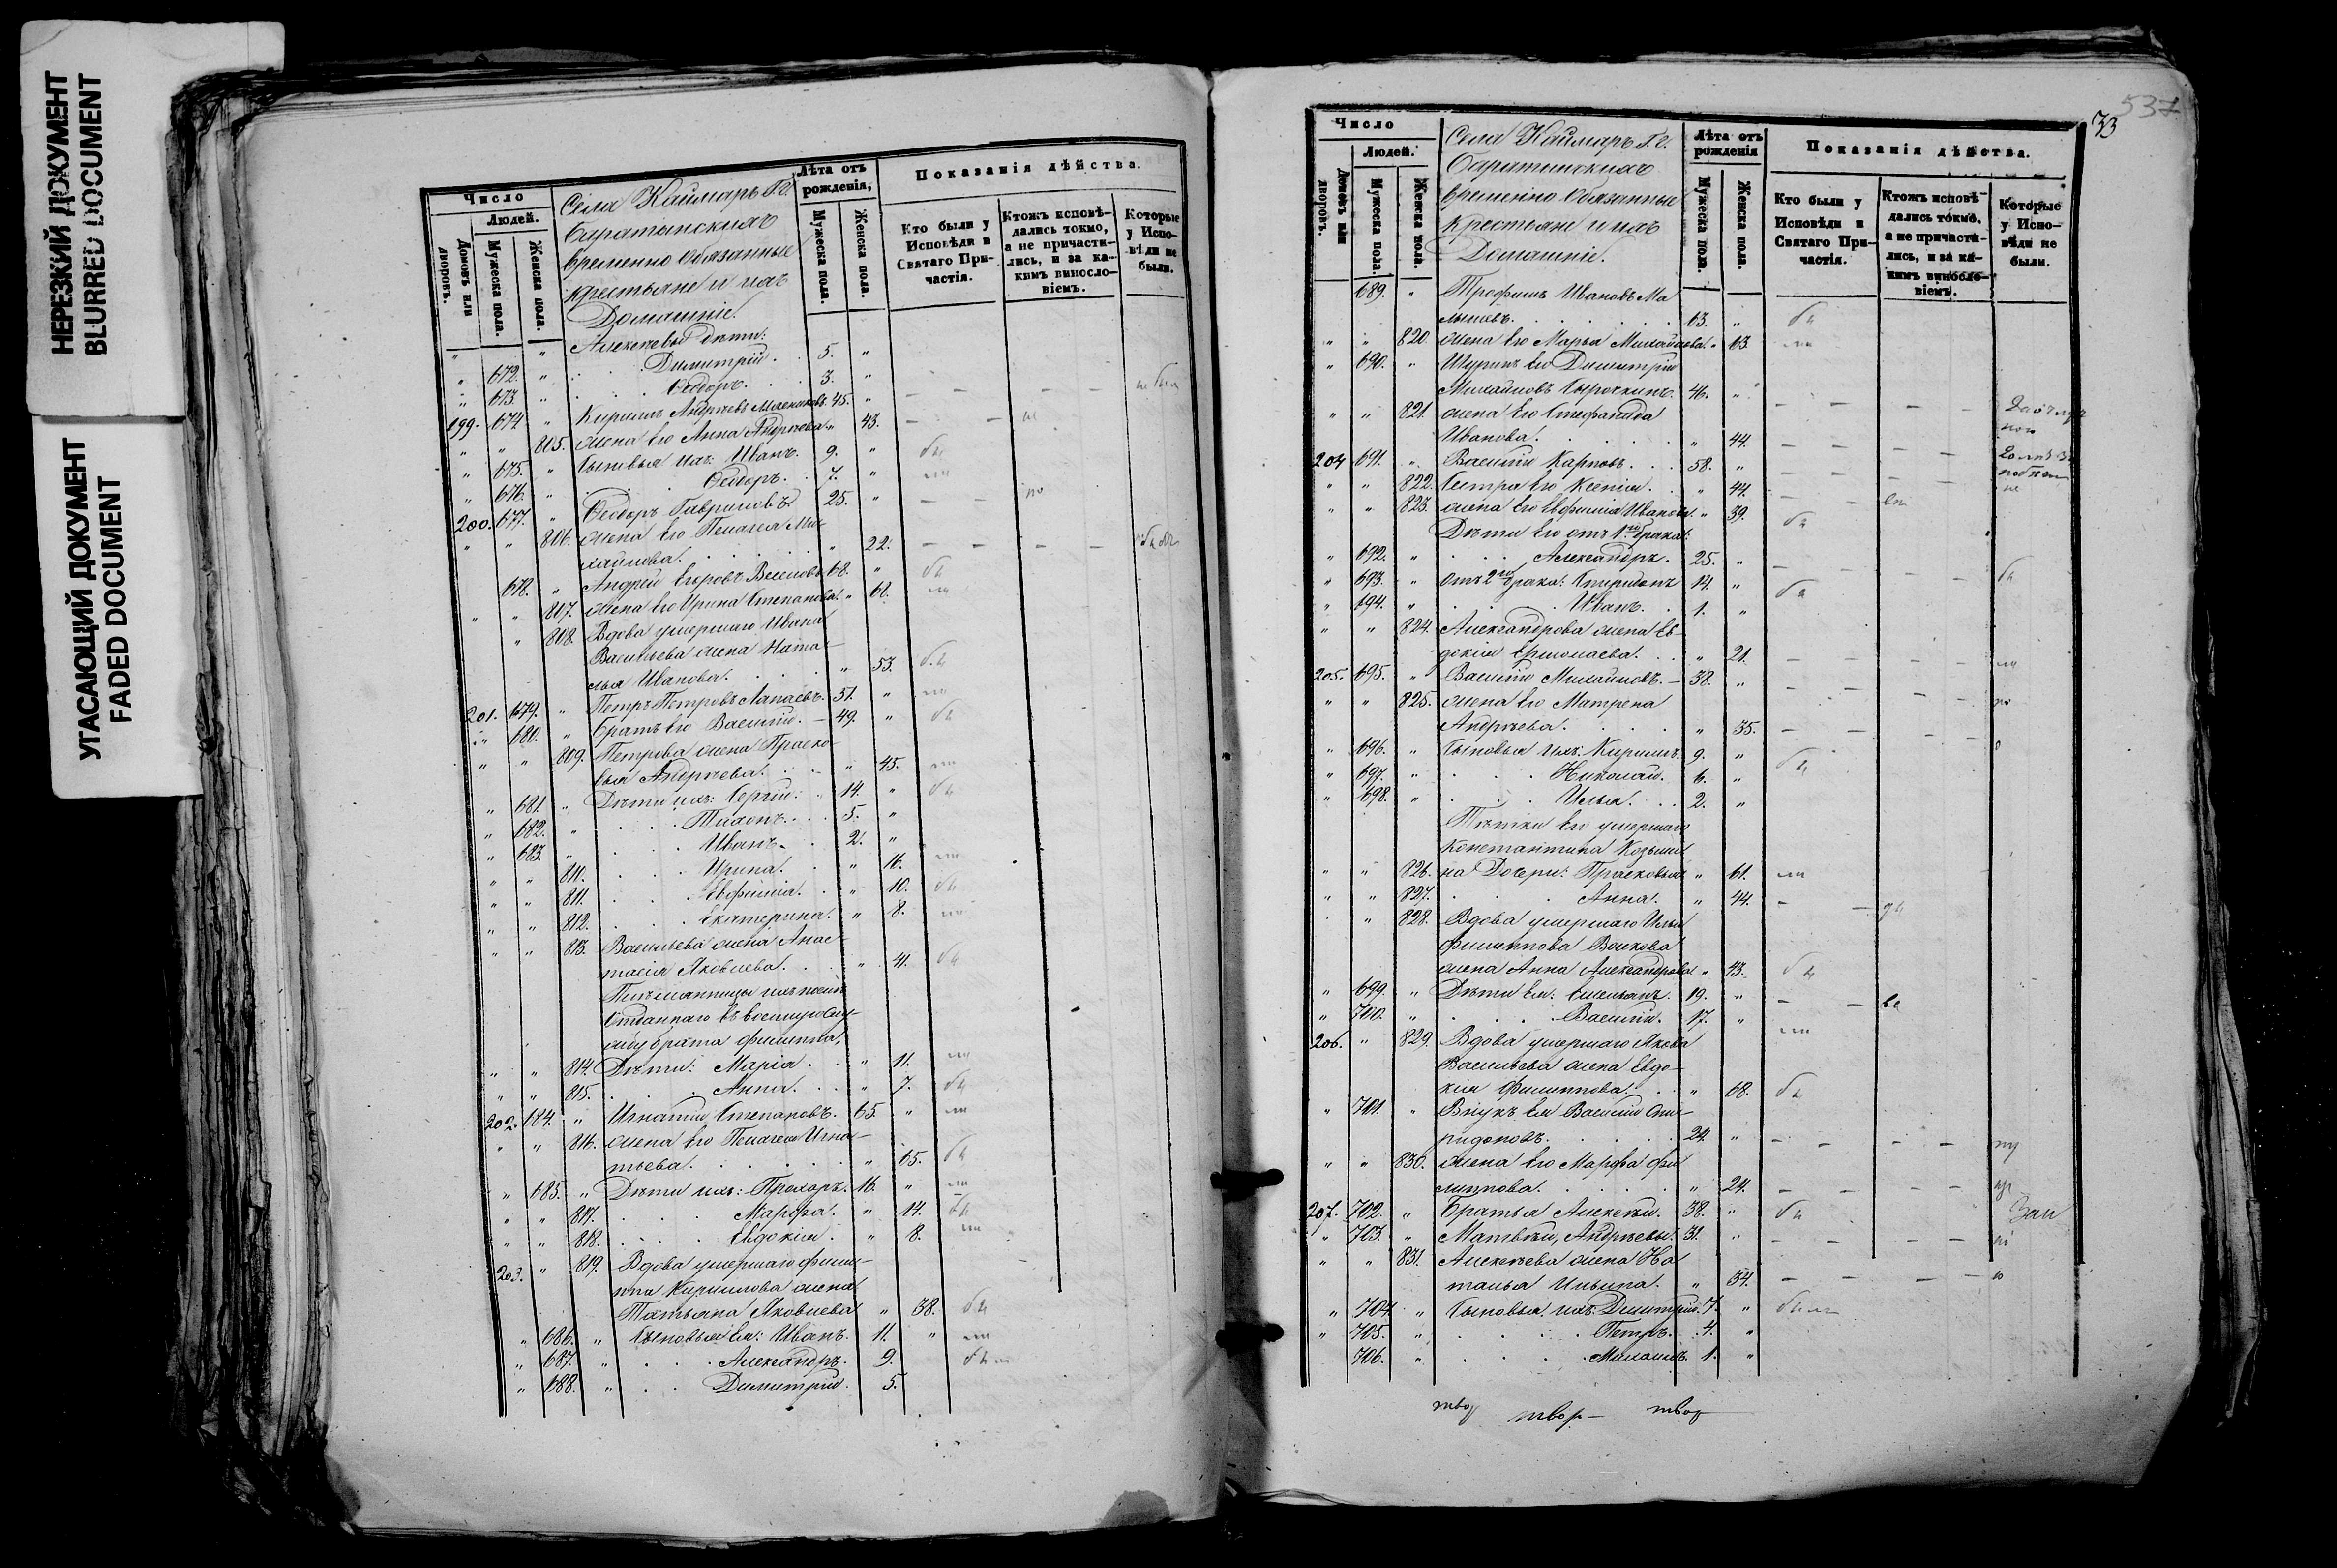 НЕРЕЗКИЙ ДОКУМЕНТ
BLURRED DOCUMENT
УГАСАЮЩИЙ ДОКУМЕНТ
FADED DOCUMENT
Число
Людей.
Домовъ или дворовъ.
Мужеска пола.
Женска пола.
Села Каймаръ Г.г.
Баратынскихъ
временно обязанные
крестьяне и ихъ
Домашніе.
Лѣта отъ рожденія,
Мужеска пола.
Женска пола.
Показанія дѣйства.
Кто были у Исповѣди и Святаго Причастія.
Ктожъ исповѣдались токмо, а не причастились, и за какимъ винословіемъ.
Которые у Исповѣди не были.
" " Алексѣевы дѣти:
" 672. " Димитрій. 5. "
" 673. " Ѳедоръ. 3. "
199. 674 " Кириллъ Андреевъ 45. "
" " 805. жена его Анна Андреева " 43.
" 675. " Сыновья ихъ: Иванъ. 9. "
" 676. " Ѳедоръ. 7. "
200. 677. " Ѳедоръ Гавриловъ 25. "
" " 806. жена его Пелагея Ми-
хайлова. " 22.
678. " Андрей Егоровъ 68. "
" " 807. жена его Ирина Степанова. " 61.
" 808. Вдова умершаго Ивана
Васильева жена Ната-
лья Иванова. " 53.
201. 679. " Петръ Петровъ Лапаевъ. 51. "
" 680. " Братъ его Василій. 49. "
" " 809. Петрова жена Праско-
вья Андреева. " 45.
" 681. " Дѣти ихъ: Сергій. 14. "
" 682. " Тихонъ. 5. "
" 683. " Иванъ. 2. "
" " 810. Ирина. " 16.
" " 811. Евфимія. " 10.
" " 812. Екатерина. " 8.
" " 813. Васильева жена Анас-
тасія Яковлева. " 41.
Племянницы ихъ
Отданнаго въ военную слу-
жбу брата Филиппа,
" " 814. Дѣти: Марія. " 11.
" " 815. Анна. " 7.
202. 684. " Игнатій Степановъ. 65. "
" " 816. жена его Пелагея Игна-
тьева. " 65.
" 685. " Дѣти ихъ: Прохоръ. 16. "
" " 817. Марѳа. " 14.
" " 818. Евдокія. " 8.
203. " 819. Вдова умершаго Фили-
ппа Кириллова жена
Татьяна Яковлева " 38.
" 686. " Сыновья ея: Иванъ. 11. "
" 687. " Александръ. 9.
" 688. " Димитрій. 5.
537
33
Число
Людей.
Домовъ или дворовъ.
Мужеска пола.
Женска пола.
Села Каймаръ Г.г.
Баратынскихъ
временно обязанные
крестьяне и ихъ
Домашніе.
Лѣта отъ рожденія
Мужеска пола.
Женска пола.
Показанія дѣйства.
Кто были у Исповѣди и Святаго Причастія.
Ктожъ исповѣдались токмо, а не причастились, и за какимъ винословіемъ.
Которые у Исповѣди не были.
689. " Трофимъ Ивановъ Ма
лышевъ. 63. "
" " 820. жена его Марья Михайлова. " 63.
" 690. " Шуринъ его Димитрій
Михайловъ Сырочкинъ. 46. "
" " 821. жена его Стефанида
Иванова. " 44.
204 691. " Василій Карповъ. 58. "
" " 822. Сестра его Ксенія. " 44.
" " 823. жена его Евфимія Иванова. " 39.
Дѣти его отъ 1го брака:
" 692. " Александръ. 25. "
" 693. " Отъ 2го брака: Спиридонъ 14. "
" 694. " Иванъ. 1. "
" " 824. Александрова жена Ев-
докія Ермолаева. " 21.
205. 695. " Василій Михайловъ. 38. "
" " 825. жена его Матрена
Андреева. " 35.
" 696. " Сыновья ихъ: Кириллъ. 9. "
" 697. " Николай. 6. "
" 698. " Илья. 2. "
Тетки его умершаго
Константина Козьми-
" " 826. на Дочери: Прасковья " 61.
" " 827. Анна. " 44.
" 828. Вдова умершаго Ильи
Филиппова Волкова
жена Анна Александрова " 43.
" 699. " Дѣти ея: Емельянъ. 19. "
" 700. " Василій. 17. "
206. " 829. Вдова умершаго Якова
Васильева жена Евдо-
кія Филиппова. " 68.
" 701. " Внукъ ея Василій Спи-
ридоновъ. 24. "
" " 830. жена его Марѳа Фи
липпова. " 24.
207. 702. " Братья Алексѣй. 38. "
" 703. " Матвѣй, Андреевы. 31. "
" " 831. Алексѣева жена На
талья Ильина. " 34.
" 704. " Сыновья ихъ: Димитрій. 7. "
" 705. " Петръ. 4. "
706. " Михаилъ. 1. "
твор твор твор